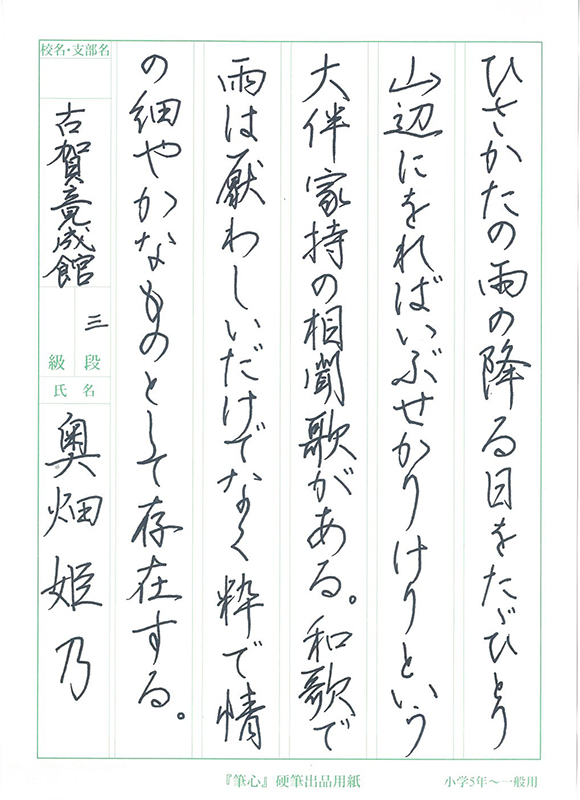 ひさかたの雨の降る日をたゞひとり
山辺にをればいぶせかりけりという
大伴家持の相聞歌がある。和歌で
雨は厭わしいだけでなく粋で情
の細やかなものとして存在する。
校名・支部名
古賀竟成館
三
段
級
氏名
奥畑姫乃
『筆心』硬筆出品用紙
小学5年〜一般用